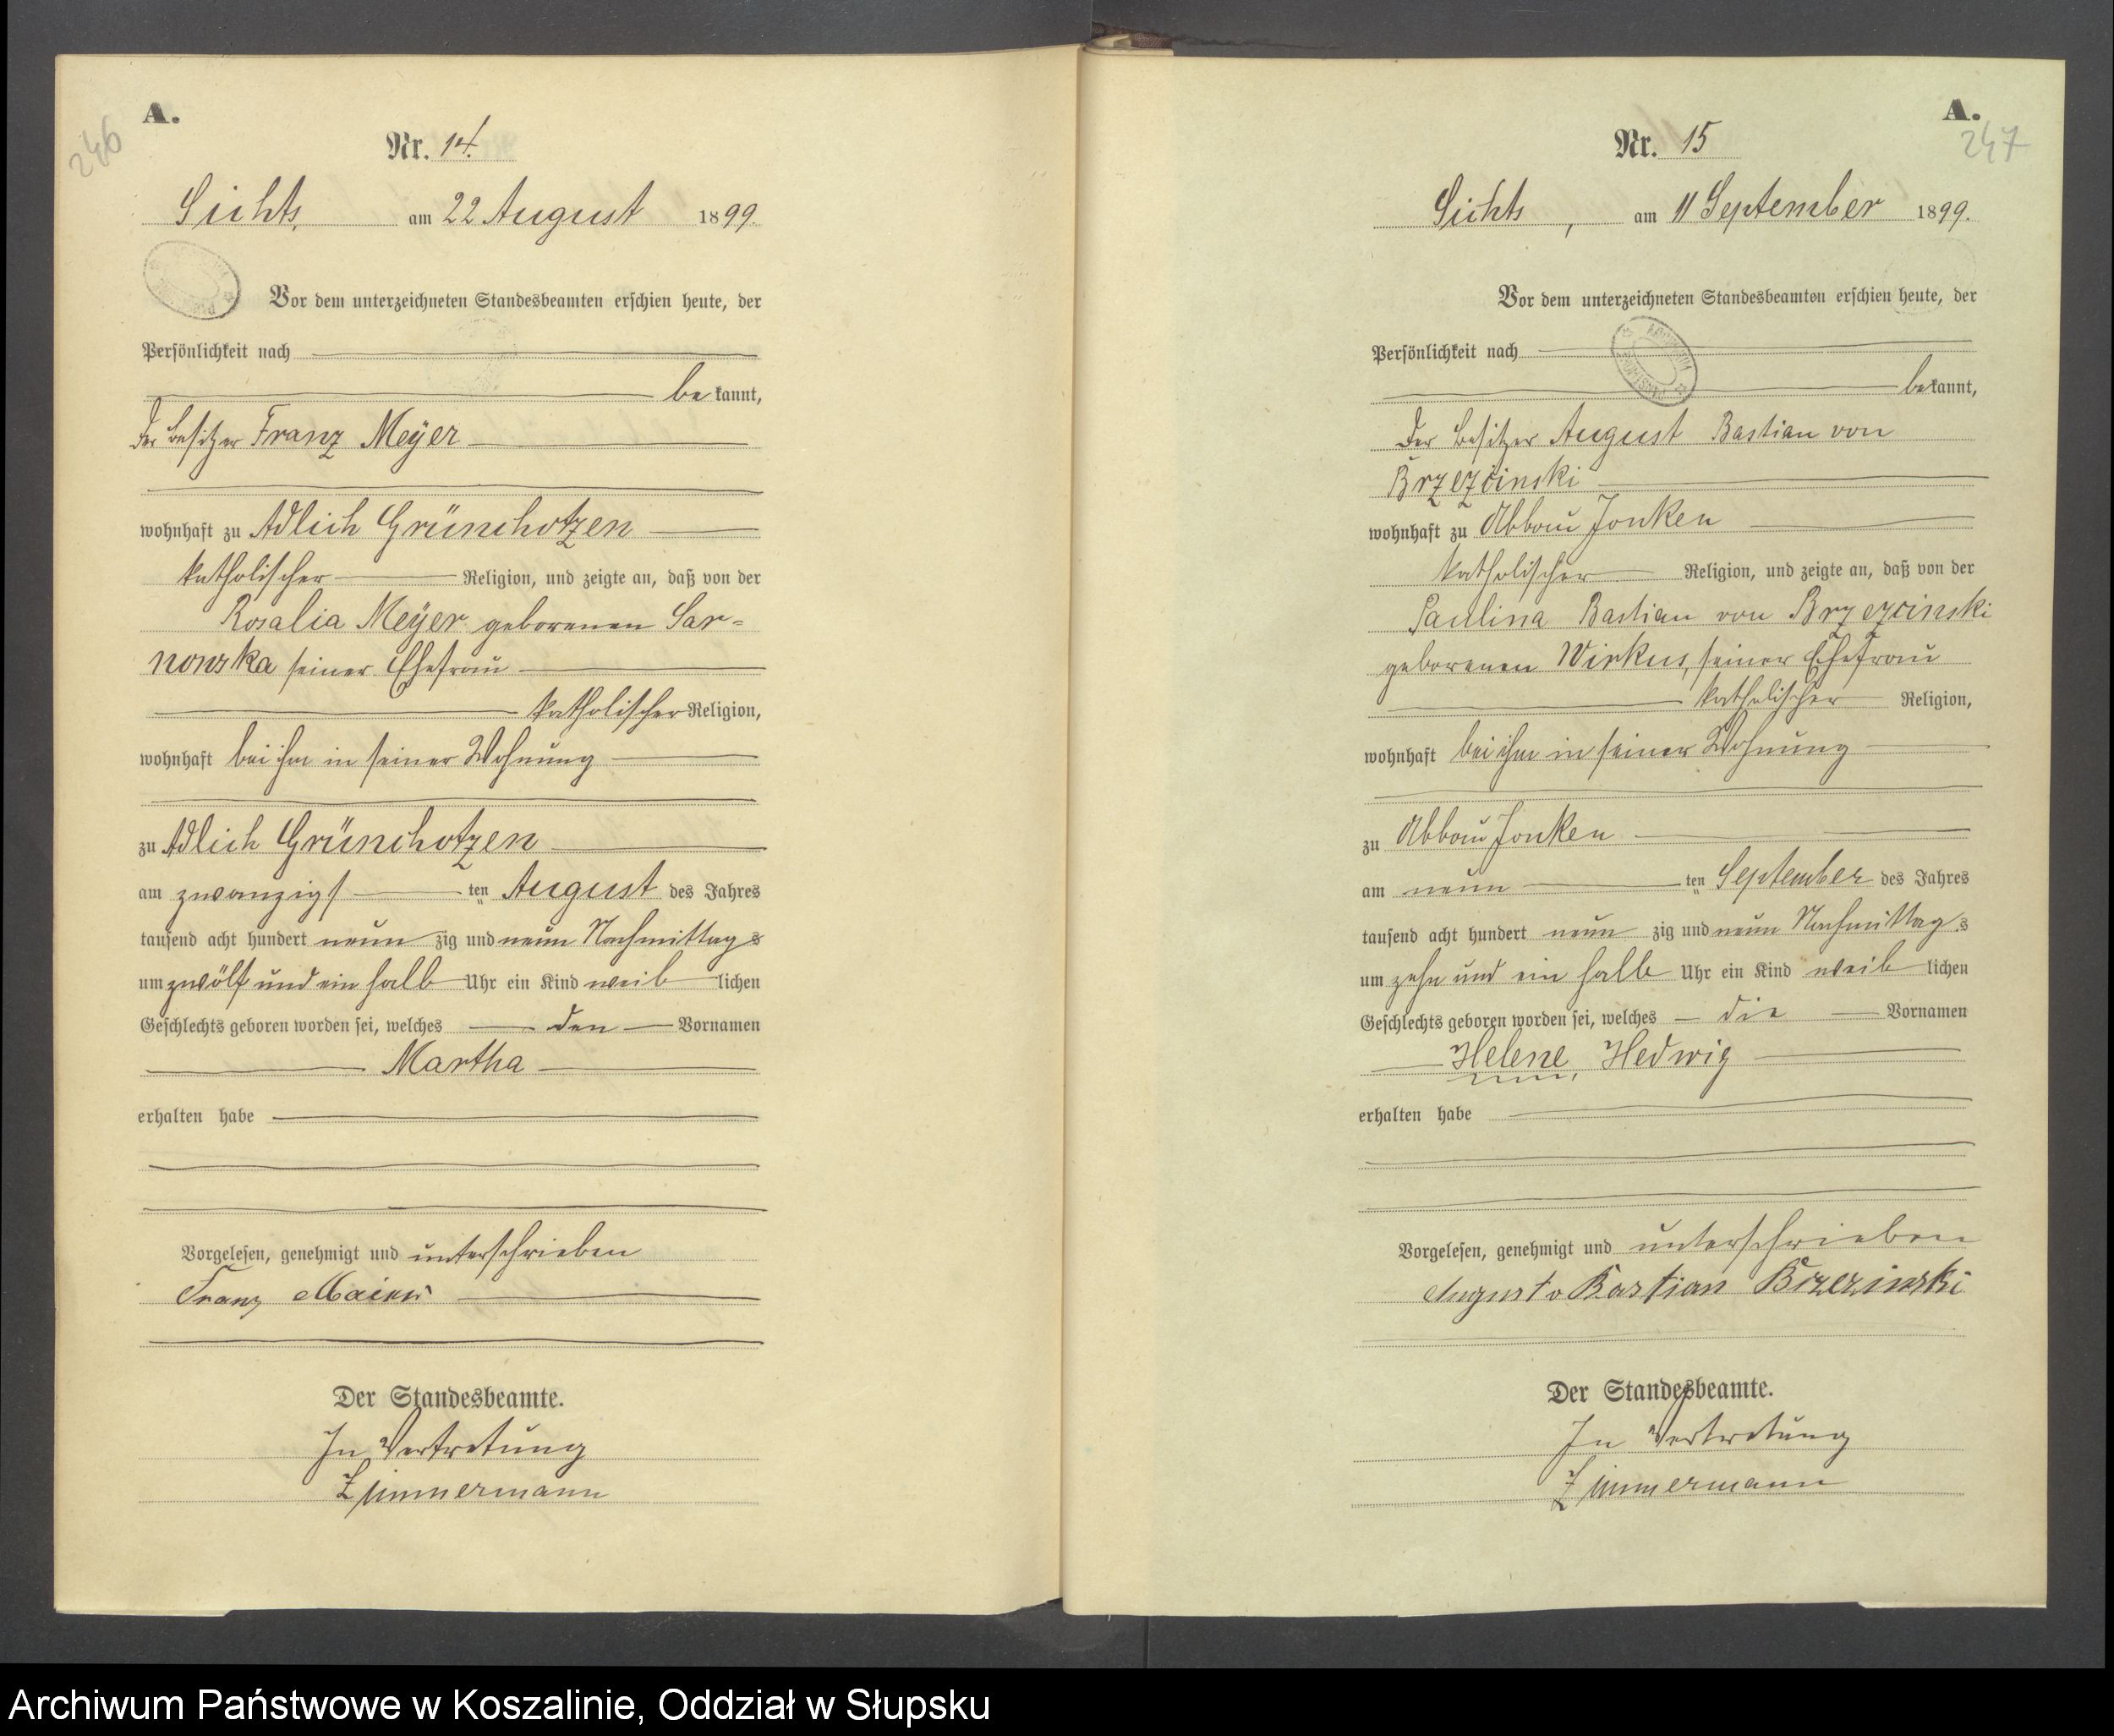 246
A.
Nr. 14.
Sichts, am 22 August 1899.
Vor dem unterzeichneten Standesbeamten erschien heute, der
Persönlichkeit nach
bekannt,
der Besitzer Franz Meÿer
wohnhaft zu Adlich Grünchotzen
katholischer Religion, und zeigte an, daß von der
Rosalia Meÿer geborenen Sar=
nowska seiner Ehefrau
katholischer Religion,
wohnhaft bei ihm in seiner Wohnung
zu Adlich Grünchotzen
am zwanzigsten August des Jahres
tausend acht hundert neunzig und neun Nachmittags
um zwölf und ein halb Uhr ein Kind weiblichen
Geschlechts geboren worden sei, welches den Vornamen
Martha
erhalten habe
Vorgelesen, genehmigt und unterschrieben
Franz
Der Standesbeamte.
In Vertretung
Zimmermann
A.
247
Nr. 15
Sichts, am 11 September 1899.
Vor dem unterzeichneten Standesbeamten erschien heute, der
Persönlichkeit nach
bekannt,
der Besitzer August Bastian von
Brzezcinski
wohnhaft zu Abbau Jonken
katholischer Religion, und zeigte an, daß von der
Paulina Bastian von Brzezcinski
geborenen Wirkus, seiner Ehefrau
katholischer Religion,
wohnhaft bei ihm in seiner Wohnung
zu Abbau Jonken
am neunten September des Jahres
tausend acht hundert neunzig und neun Nachmittags
um zehn und ein halb Uhr ein Kind weiblichen
Geschlechts geboren worden sei, welches die Vornamen
Helene, Hedwig
erhalten habe
Vorgelesen, genehmigt und unterschrieben
August v Bastian Brzezinski
Der Standesbeamte.
In Vertretung
Zimmermann
Archiwum Państwowe w Koszalinie, Oddział w Słupsku